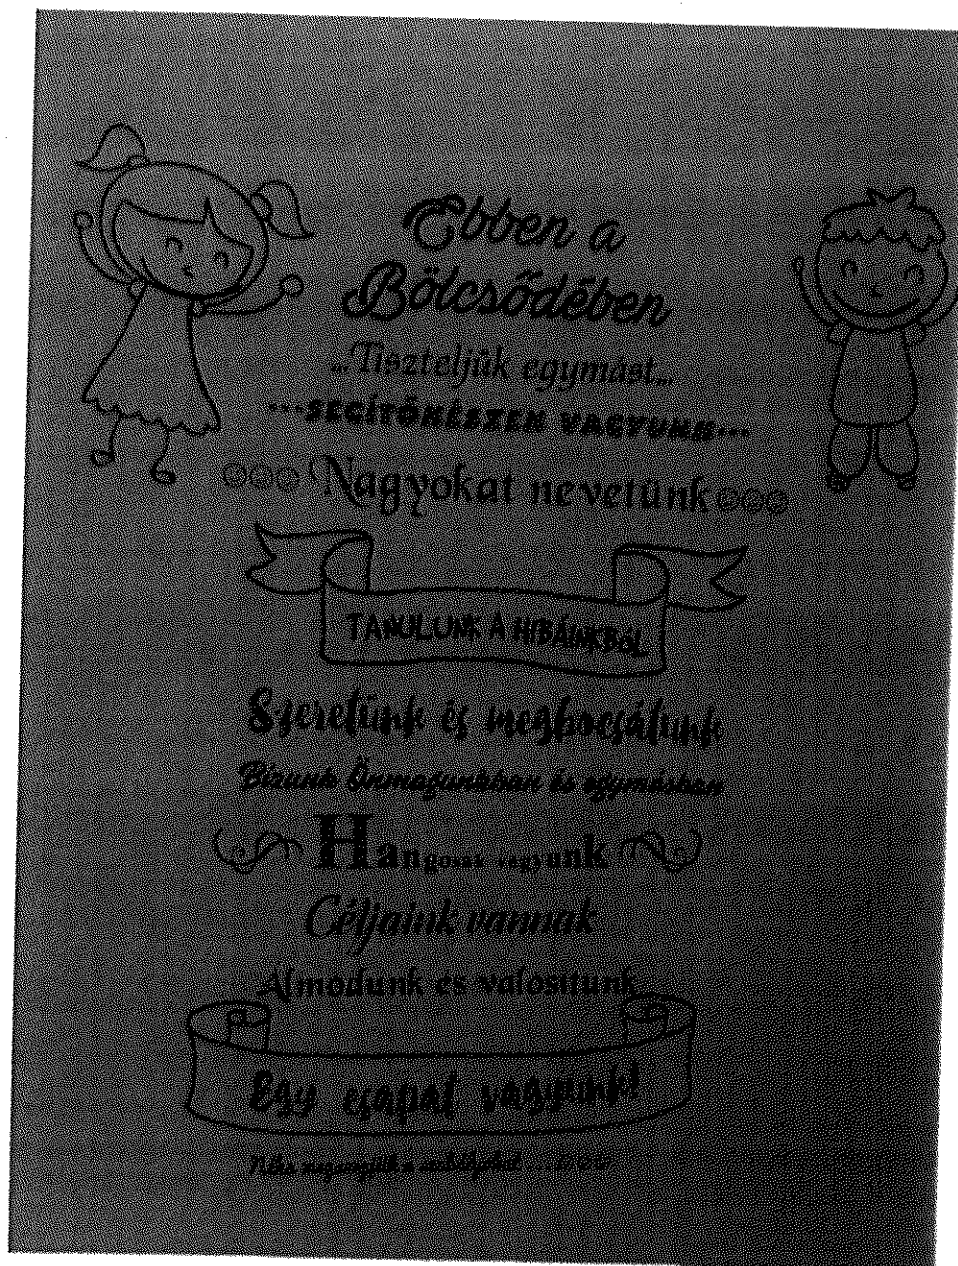 Ebben a
Bölcsődében
...Tiszteljük egymást...
...SEGÍTŐKÉSZEK VAGYUNK...
Nagyokat nevetünk
TANULUNK A HIBÁINKBÓL
Szeretünk és megbocsátunk
Bízunk Önmagunkban és egymásban
Hangosak vagyunk
Céljaink vannak
Álmodunk és valósítunk
Egy csapat vagyunk!